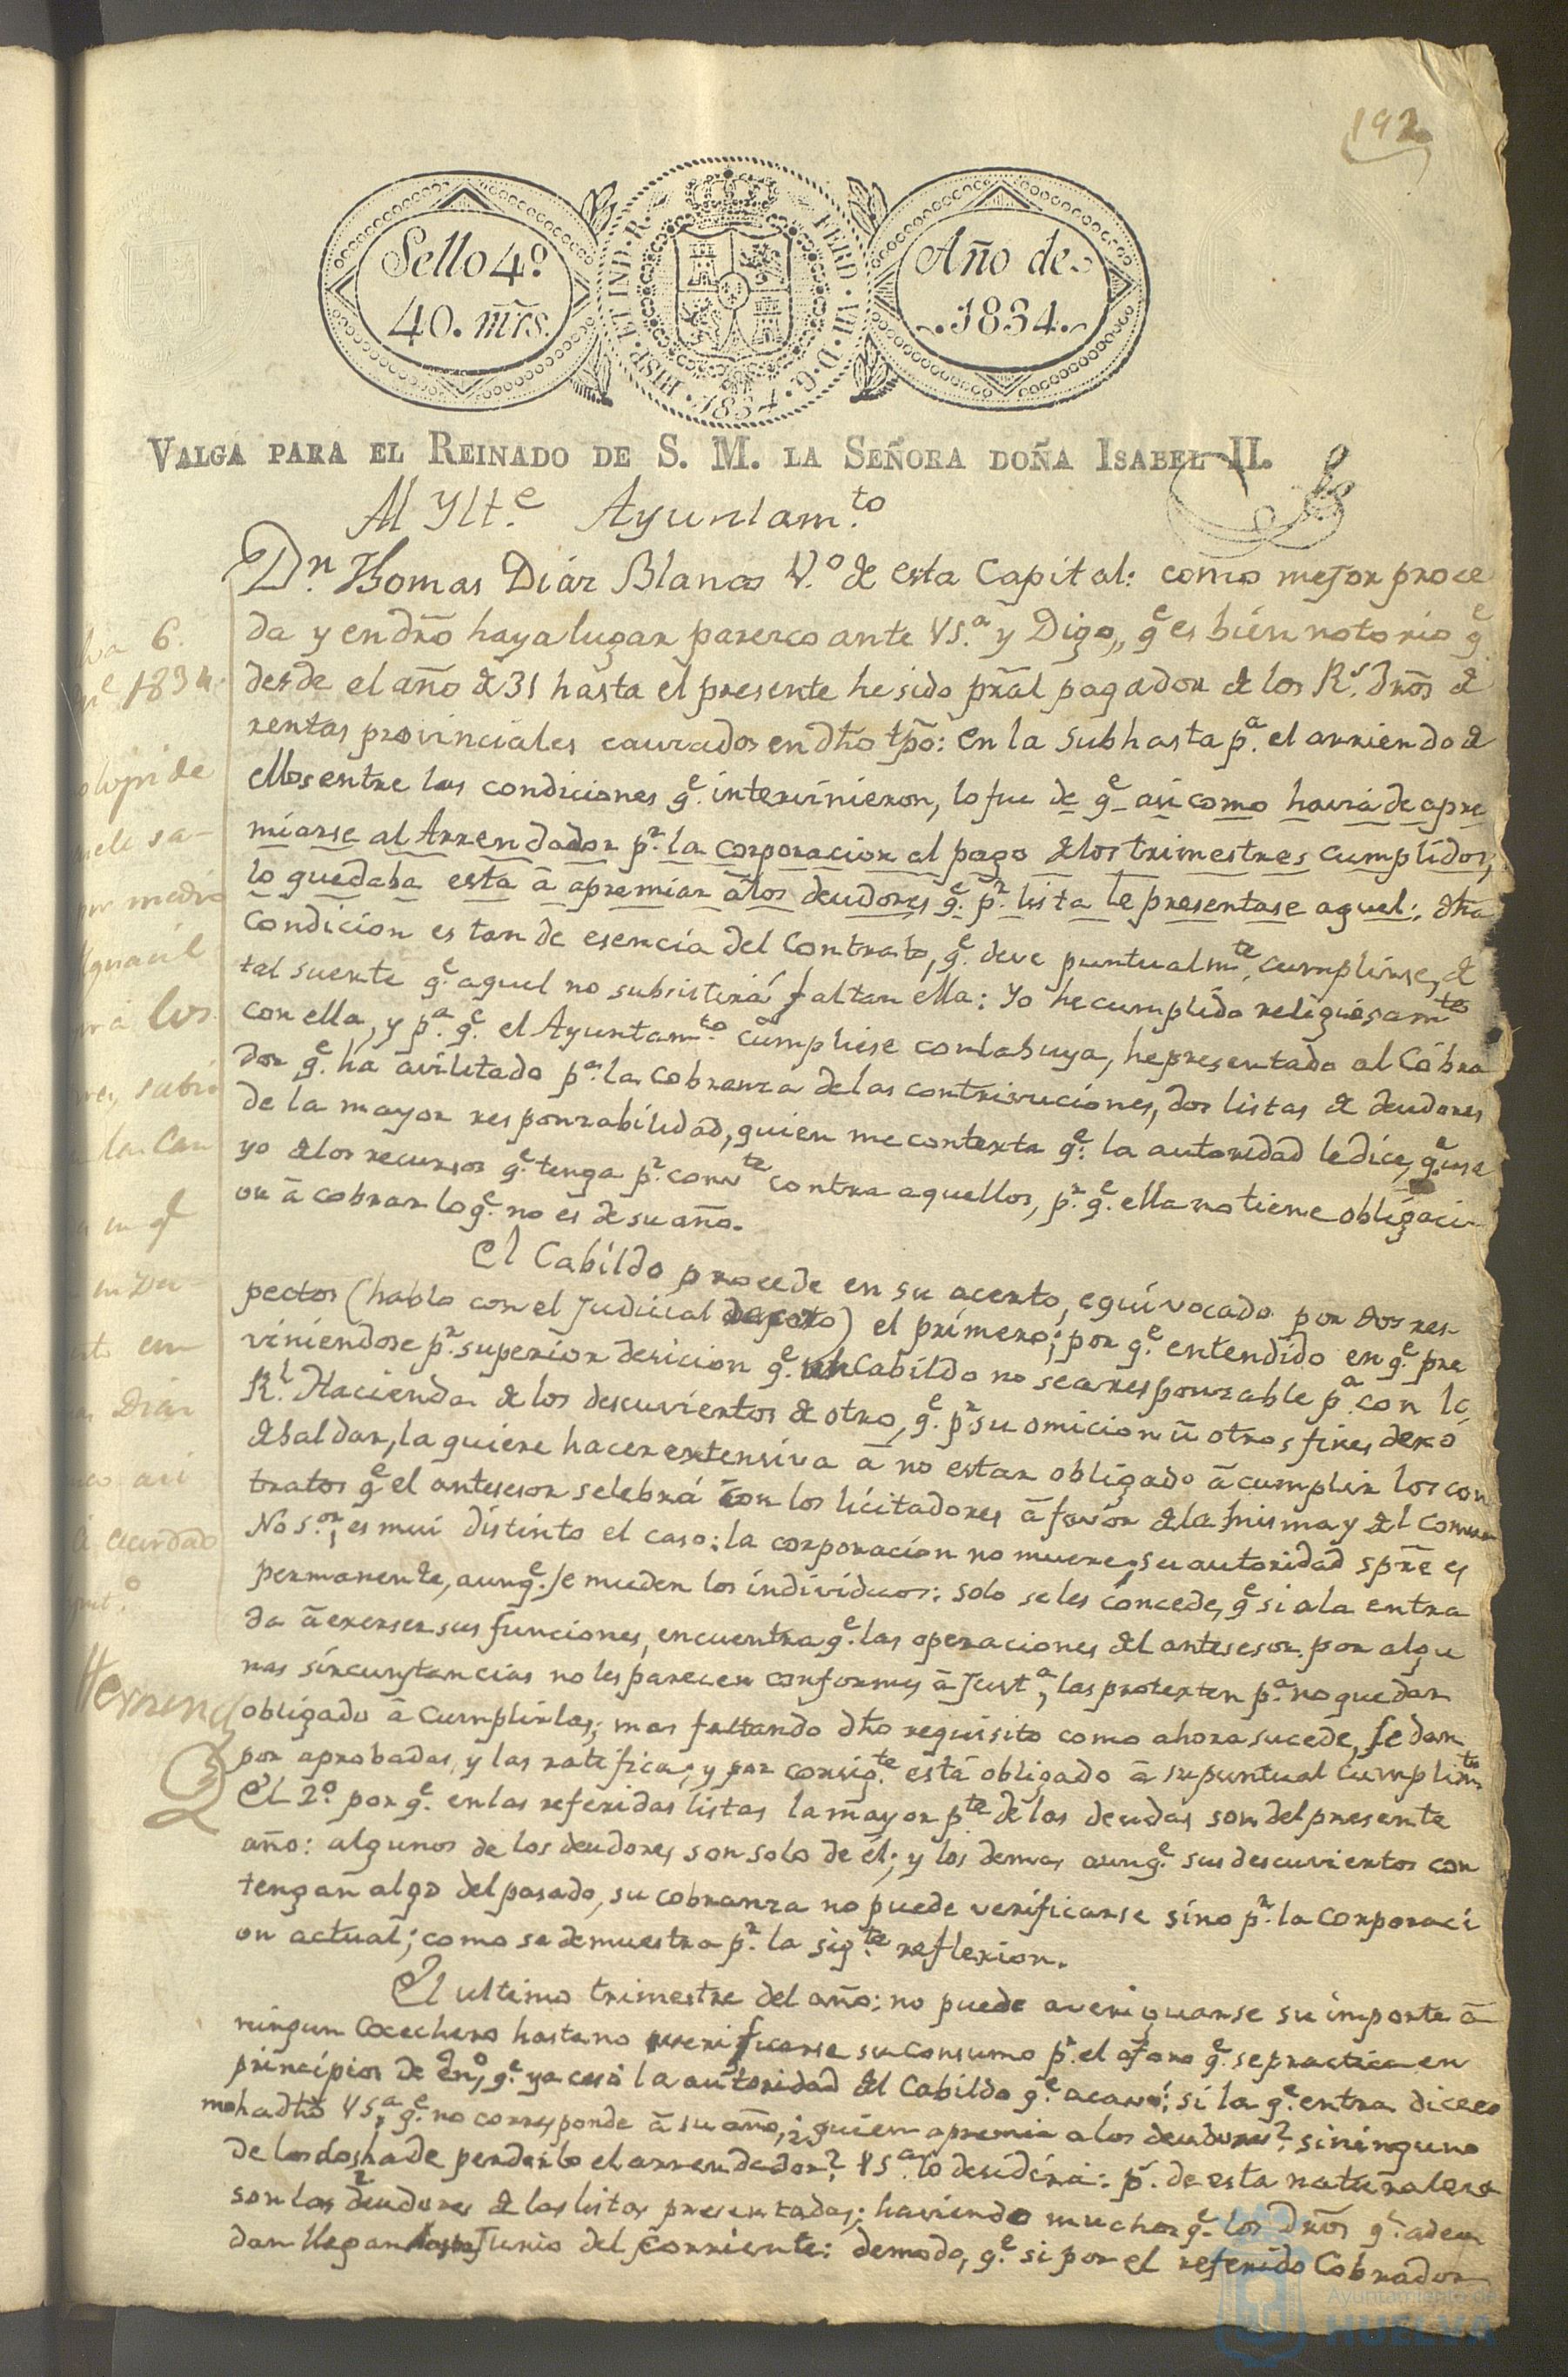 192
Sello 4º
40. mrs.
HISP. ET IND. R.
FERD. VII. D. G.
1834.
Año de
1834.
VALGA PARA EL REINADO DE S. M. LA SEÑORA DOÑA ISABEL II.
Al Ylt.e Ayuntam.to
Dn. Thomas Diáz Blanco V.º de esta Capital: como mejor proce
da y en dr̃o haya lugar parezco ante VS.ª y Digo,, q.e es bién notorio q.e
desde el año de 31 hasta el presente he sido pr̃al pagador de los R.s dr̃os de
rentas provinciales causados en dh̃o tp̃o: en la Subhasta p.ª el arriendo de
ellos entre las condiciones q.e intervinieron, lo fue de q.e asi como havia de apre
miarse al Arrendador p.r la corporacion al pago de los trimestres cumplidos,
lo quedaba esta á apremiar á los deudores q.e p.r lista le presentase aquel: dh̃a
condicion es tan de esencia del Contrato, q.e deve puntualm.te cumplirse, de
tal suerte q.e aquel no subsistirá faltan ella: Yo he cumplido religiosam.te
con ella, y p.ª q.e el Ayuntam.to cumpliese con la suya, he presentado al Cobra
dor q.e ha avilitado p.ª la cobranza de las contrivuciones, dos listas de deudores
de la mayor responzabilidad, quien me contexta q.e la autoridad le dice, q.e use
yo de los recursos q.e tenga p.r conv.te contra aquellos, p.r q.e ella no tiene obligaci
on á cobrar lo q.e no es de su año.
El Cabildo procede en su acerto, equivocado por dos res-
pectos (hablo con el Judicial) el primero; por q.e entendido en q.e pre
viniendose p.r superior desicion q.e un Cabildo no sea responzable p.ª con la
R.l Hacienda de los descuviertos de otro, q.e p.r su omicion ũ otros fines dexó
de saldar, la quiere hacer extensiva á no estar obligado á cumplir los con
tratos q.e el antesesor selebrá con los licitadores á favor de la misma y del comun
No S.or, es mui distinto el caso: la corporacion no muere, su autoridad spr̃e es
permanente, aunq.e se muden los individuos: solo se les concede, q.e si a la entra
da á exerser sus funciones, encuentra q.e las operaciones del antesesor por algu
nas sircunstancias no les parecen conformes á Just.ª, las protexten p.ª no quedar
obligado á Cumplirlas; mas faltando dh̃o requisito como ahora sucede, se dan
por aprobadas, y las ratifica; y por consig.te está obligado á su puntual Cumplim.to
El 2.º por q.e en las referidas listas la mayor p.te de las deudas son del presente
año: algunos de los deudores son solo de él; y los demas aunq.e sus descuviertos con
tengan algo del pasado, su cobranza no puede verificarse sino p.r la Corporaci
on actual; como se demuestra p.r la sig.te reflexion.
El ultimo trimestre del año: no puede averiguarse su importe á
ningun Cocechero hasta no verificarse su consumo p.r el aforo q.e se practica en
principios de En.º, q.e ya cesó la autoridad del Cabildo q.e acavó; si la q.e entra dice co
mo ha dh̃o VS.ª q.e no corresponde á su año, ¿quien apremia a los deudores? si ninguno
de los dos ha de perderlo el arrendador? VS.ª lo desidirá: p.r de esta naturaleza
son las deudores de las listas presentadas; haviendo muchos q.e los Dr̃os q.e adeu
dan llegan hasta Junio del Corriente: de modo, q.e si por el referido Cobrador
6.
1834
medio
los
Diaz
acordado
Ayuntamiento de
HUELVA